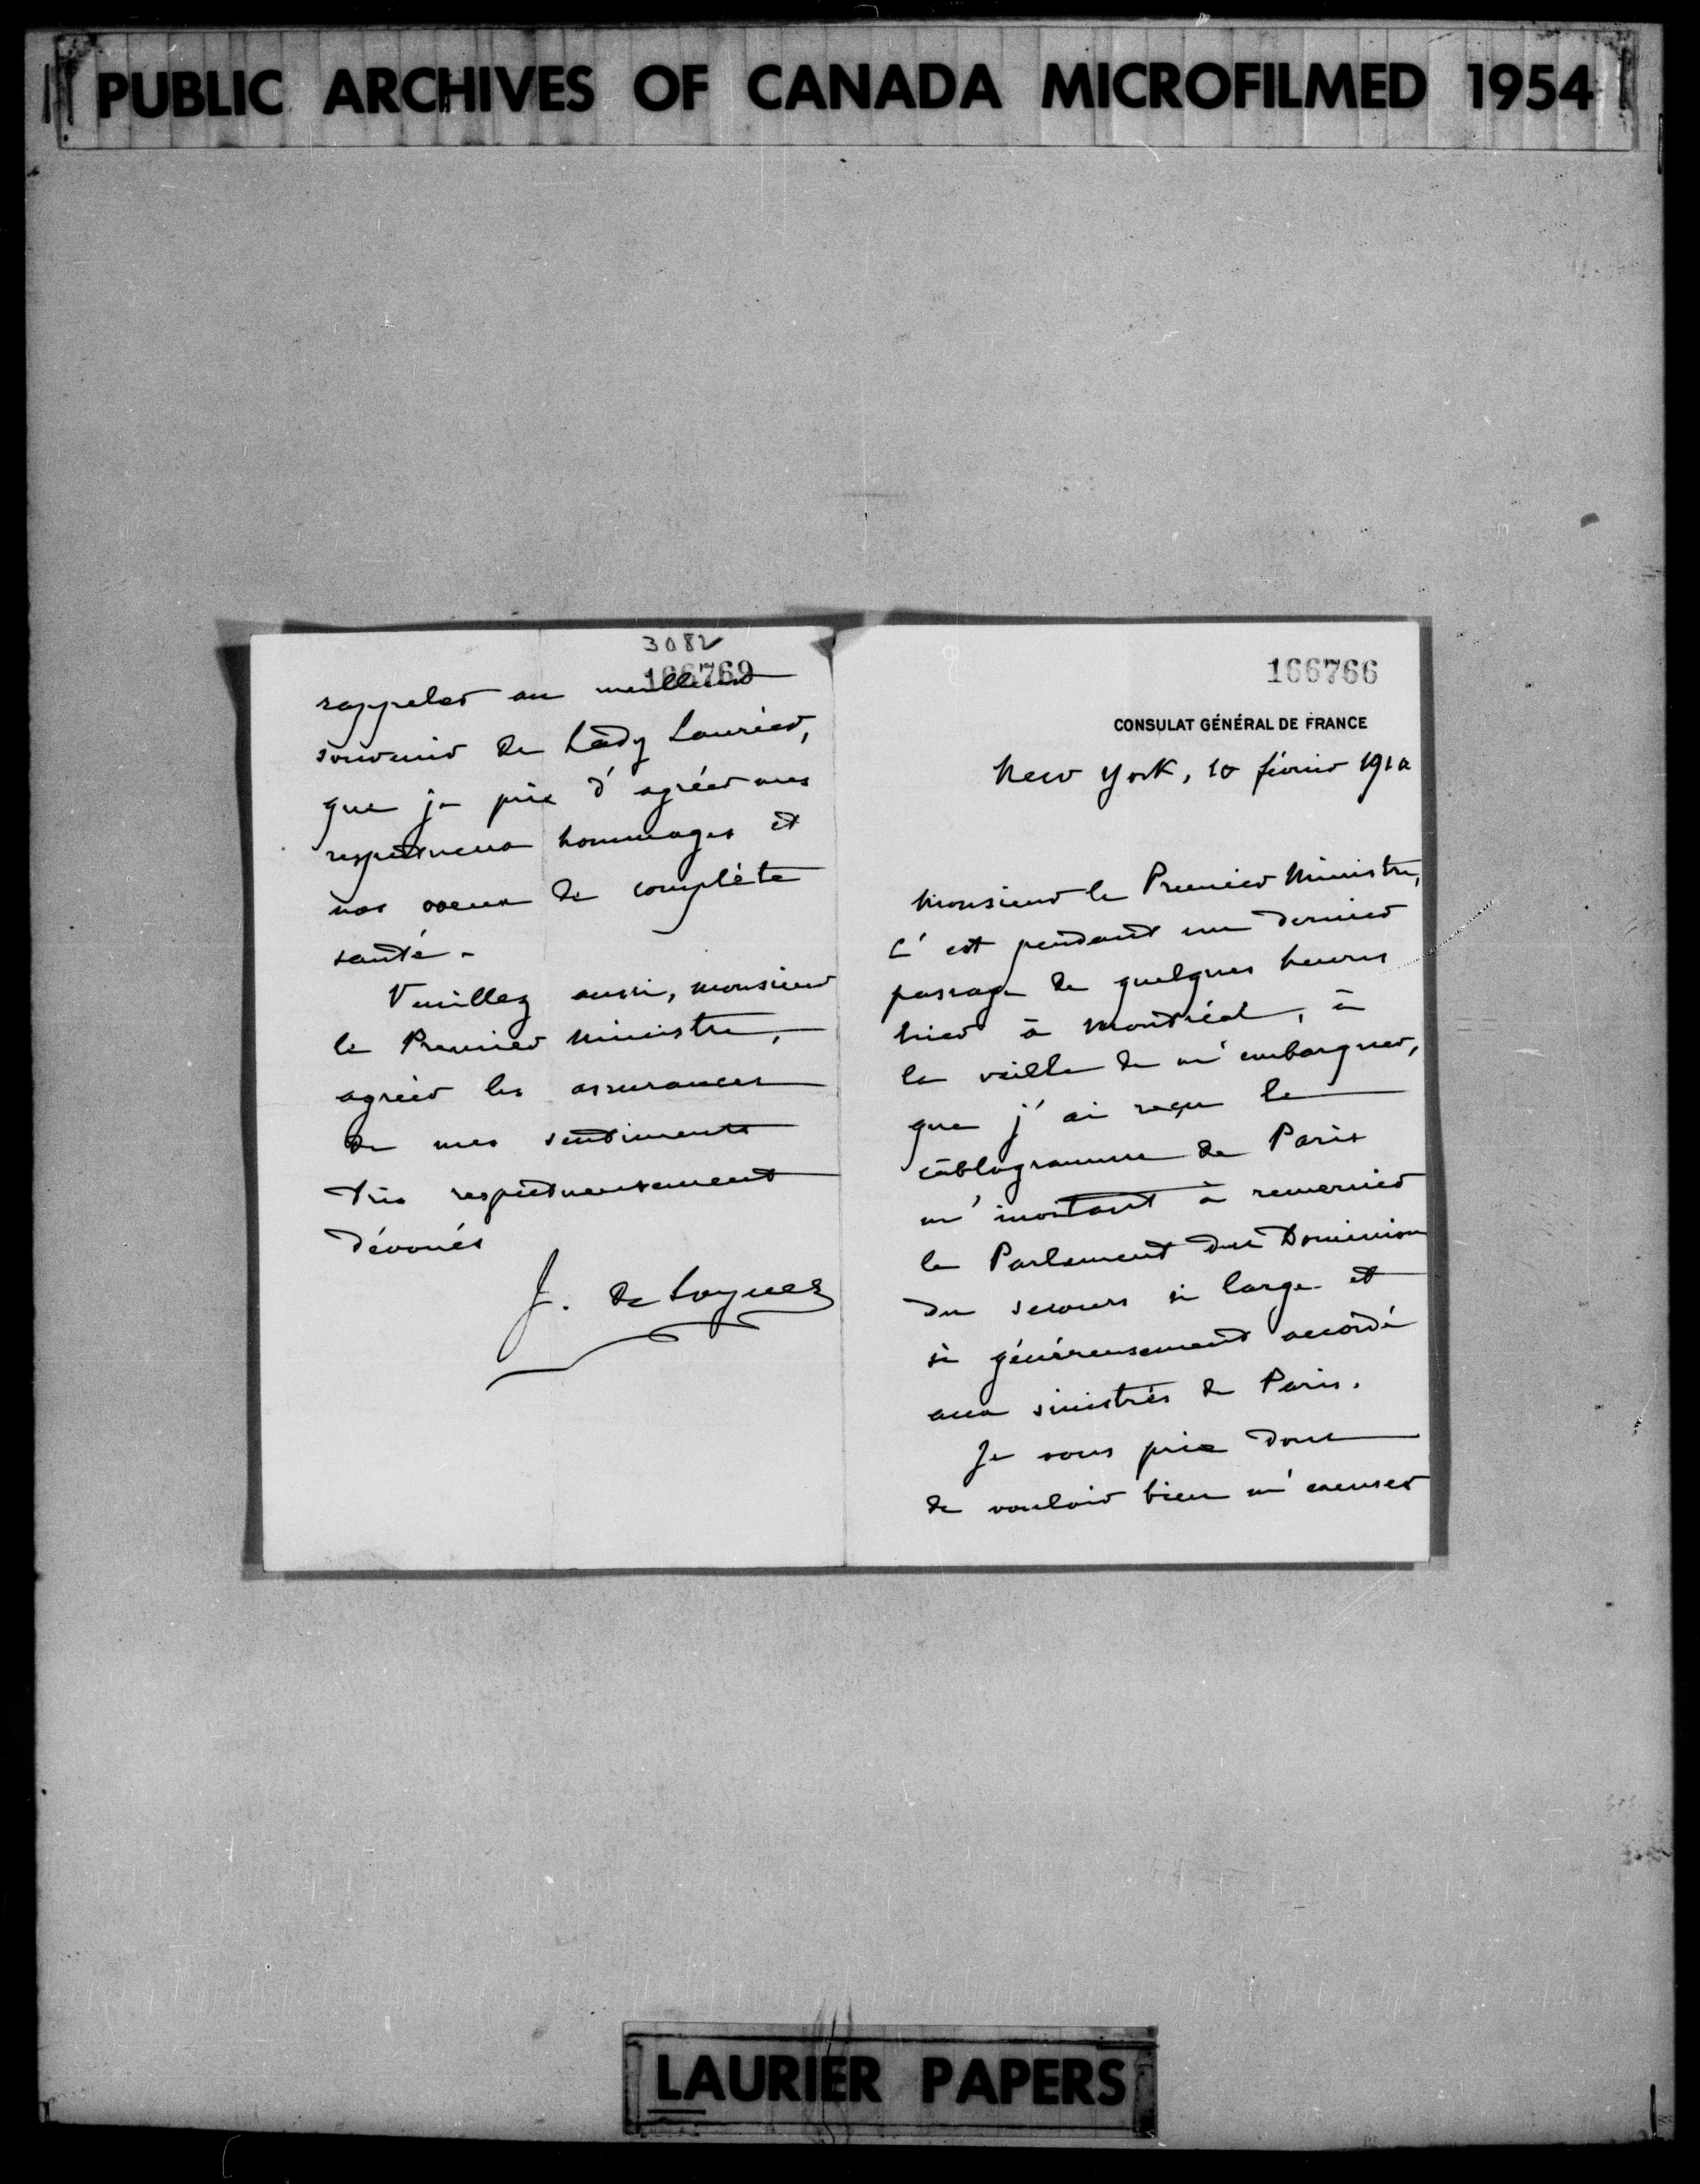 PUBLIC ARCHIVES OF CANADA MICROFILMED 1954
3082
166769
rappeler au meilleur
souvenir de Lady Laurier,
que je prie d'agréer mes
respectueux hommages et
nos voeux de complète
santé.
Veuillez aussi, monsieur
le Premier Ministre,
agréer les assurances
de mes sentiments
très respectueusement
dévoués
J. de Loynes
166766
CONSULAT GÉNÉRAL DE FRANCE
New York, 10 février 1910
Monsieur le Premier Ministre,
C'est pendant un dernier
passage de quelques heures
hier à Montréal, à
la veille de m'embarquer,
que j'ai reçu le
câblogramme de Paris
m'invitant à remercier
le Parlement du Dominion
du secours si large et
si généreusement accordé
aux sinistrés de Paris.
Je vous prie donc
de vouloir bien m'excuser
LAURIER PAPERS